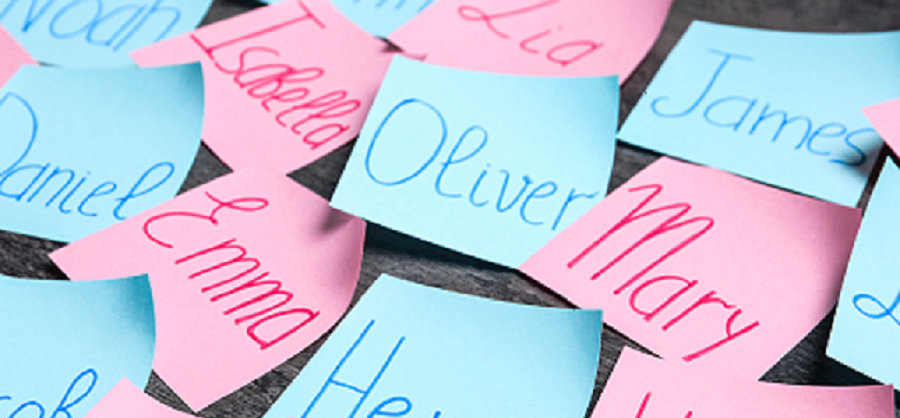 Noah
Isabella
Lia
James
Daniel
Oliver
Emma
Mary